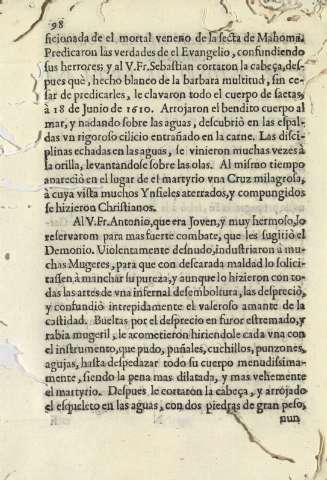 98
ficionada de el mortal veneno de la secta de Mahoma.
Predicaron las verdades de el Evangelio, confundiendo
sus herrores; y al V.Fr.Sebastian cortaron la cabeça, des-
pues què, hecho blanco de la barbara multitud, sin ce-
sar de predicarles, le clavaron todo el cuerpo de saetas,
à 18 de Junio de 1610. Arrojaron el bendito cuerpo al
mar, y nadando sobre las aguas, descubriò en las espal-
das vn rigoroso cilicio entrañado en la carne. Las disci-
plinas echadas en las aguas, se vinieron muchas vezes à
la orilla, levantandose sobre las olas. Al mismo tiempo
apareciò en el lugar de el martyrio vna Cruz milagrosa,
à cuya vista muchos Ynfieles aterrados, y compungidos
se hizieron Christianos.
Al V.Fr.Antonio, que era Joven, y muy hermoso, lo
reservarom para mas fuerte combate, que les sugiriò el
Demonio. Violentamente desnudo, industriaron à mu-
chas Mugeres, para que con descarada maldad lo solici-
tassen à manchar su pureza, y aunque lo hizieron con to-
das las artes de vna infernal desemboltura, las despreciò,
y confundiò intrepidamente el valeroso amante de la
castidad. Bueltas por el desprecio en furor estremado, y
rabia mugeril, le acometieron hiriendole cada vna con
el instrumento, que pudo, puñales, cuchillos, punzones,
agujas, hasta despedazar todo su cuerpo menudissima-
mente, siendo la pena mas dilatada, y mas vehemente
el martyrio. Despues le cortaron la cabeça, y arrojado
el esqueleto en las aguas, con dos piedras de gran peso,
nun